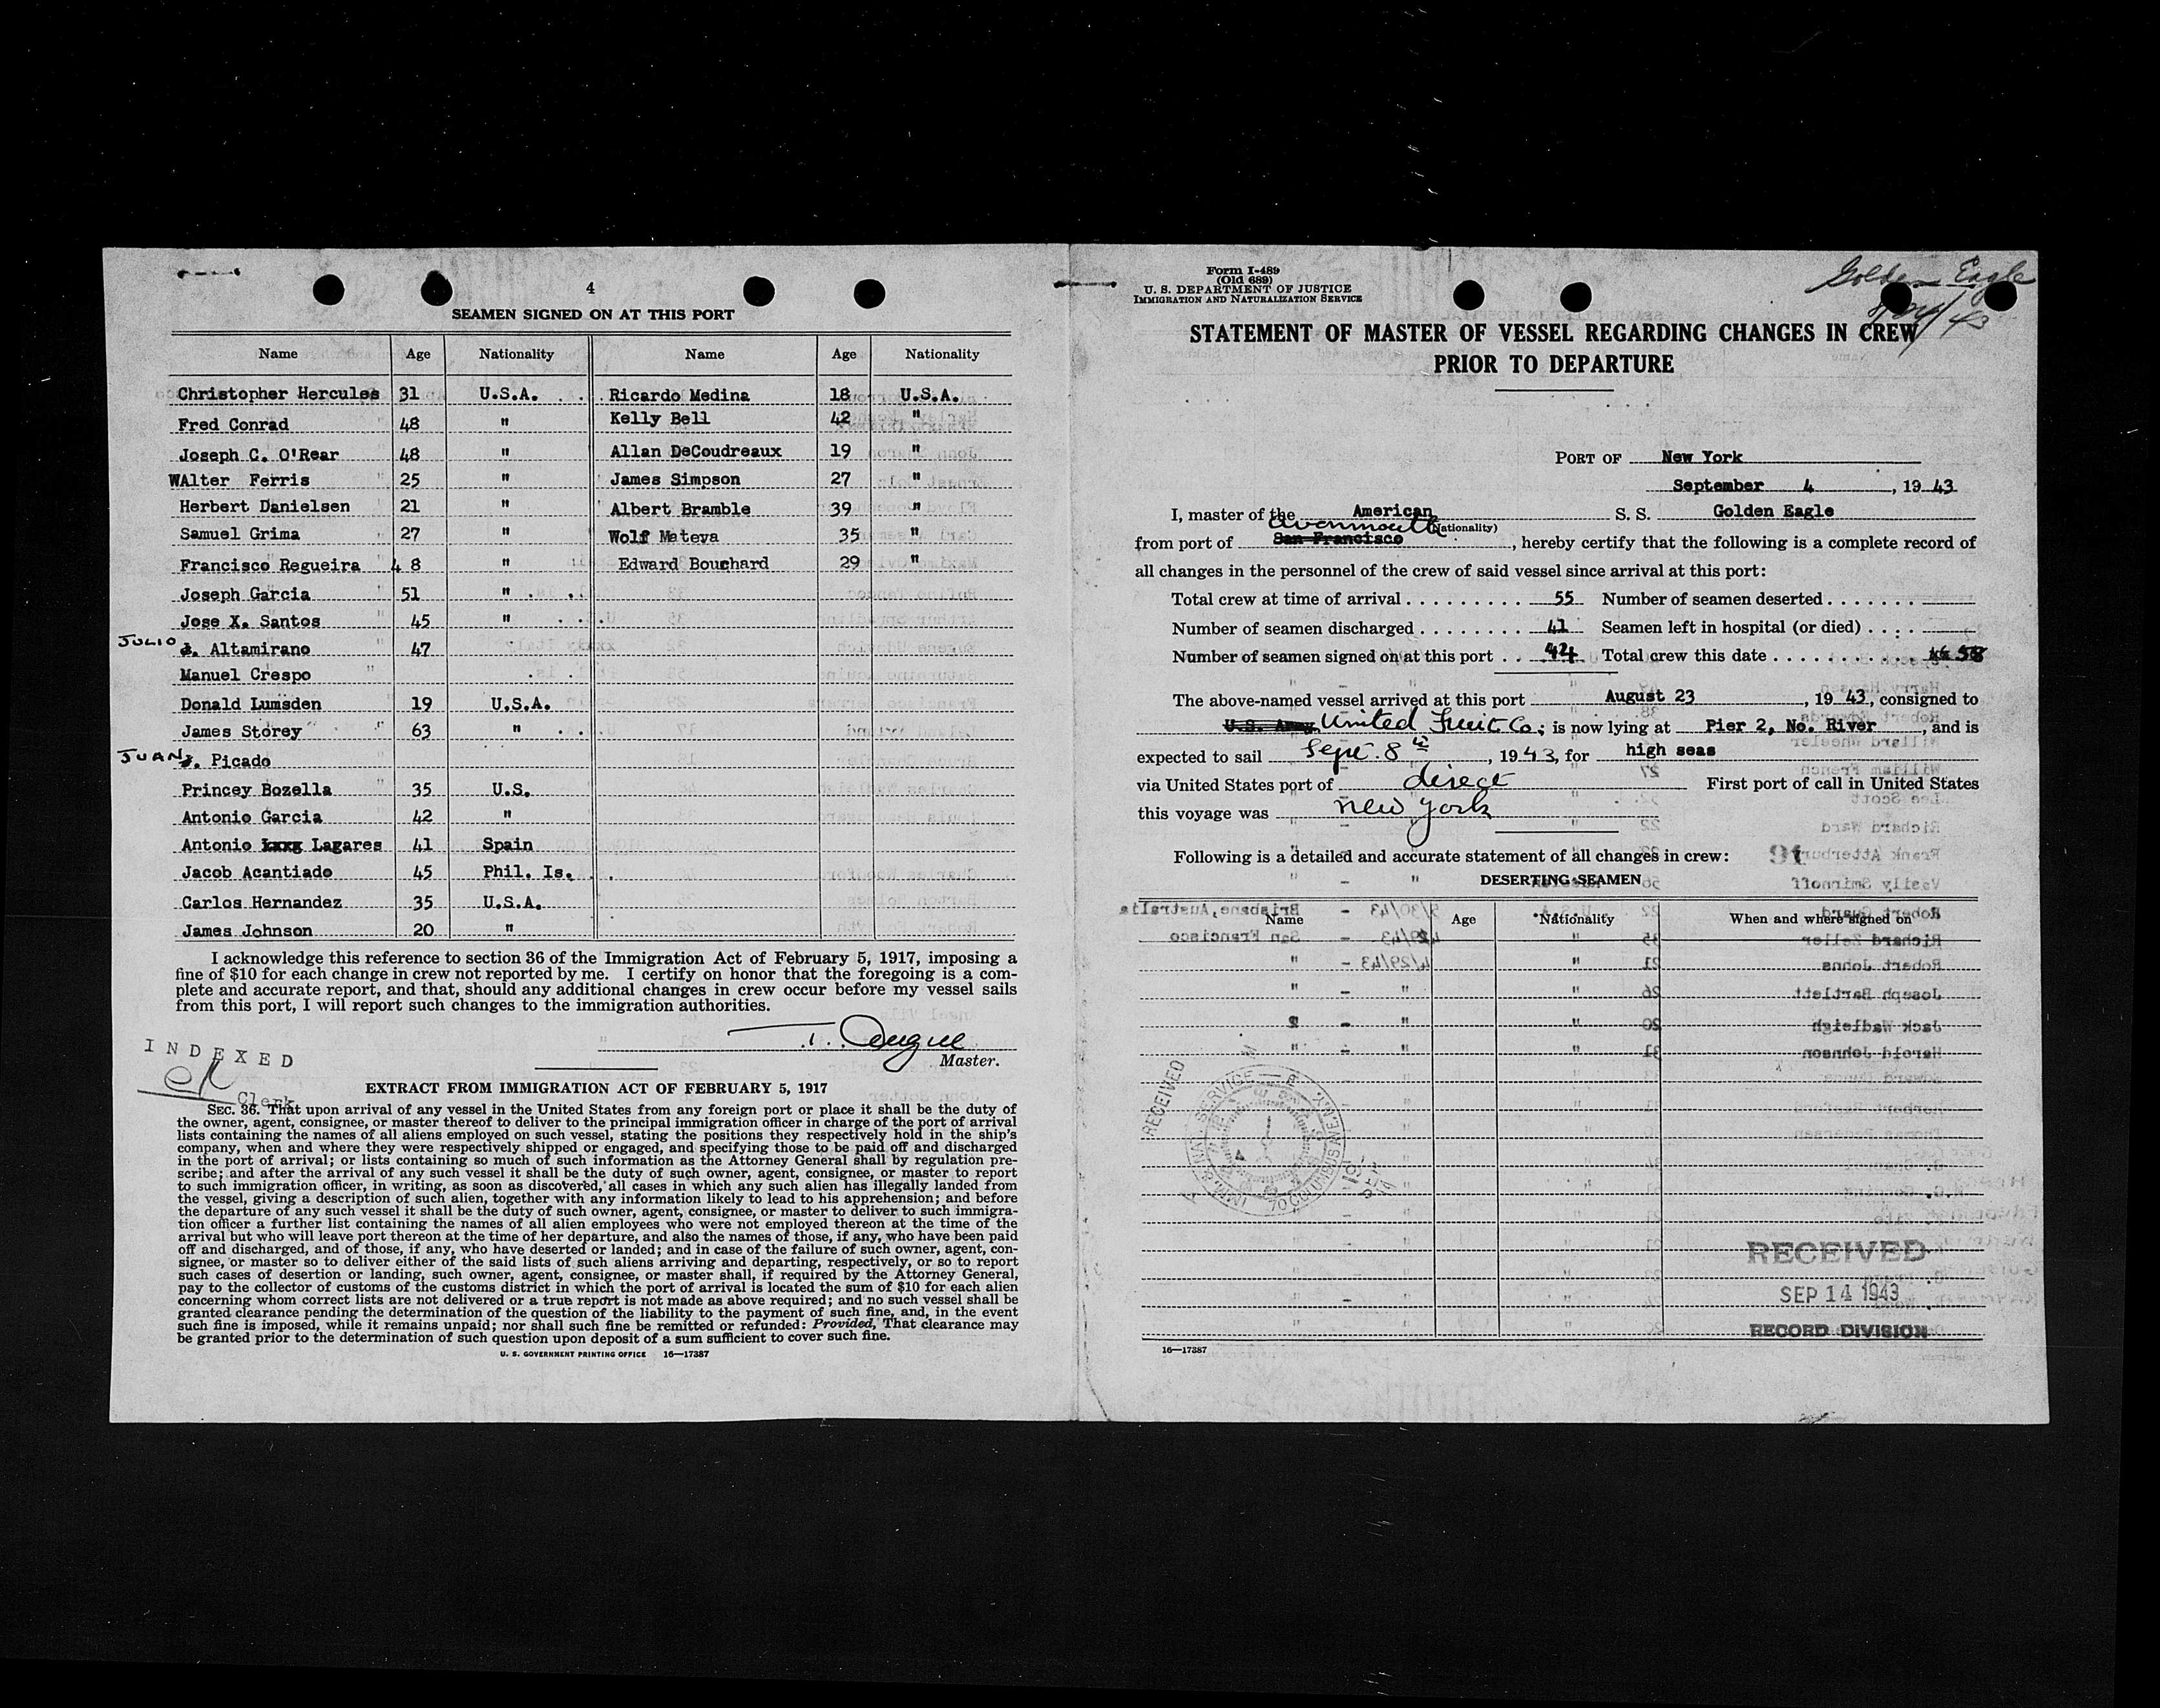 4
SEAMEN SIGNED ON AT THIS PORT
Name Age Nationality Name Age Nationality
Christopher Hercules 31 U.S.A. Ricardo Medina 18 U.S.A.
Fred Conrad 48 " Kelly Bell 42 "
Joseph C. O'Rear 48 " Allan DeCoudreaux 19 "
WAlter Ferris 25 " James Simpson 27 "
Herbert Danielsen 21 " Albert Bramble 39 "
Samuel Grima 27 " Wolf Mateva 35 "
Francisco Regueira 4 8 " Edward Bouchard 29 "
Joseph Garcia 51 "
Jose X. Santos 45 "
JULIO J. Altamirano 47
Manuel Crespo "
Donald Lumsden 19 U.S.A.
James Storey 63 "
JUAN J. Picado
Princey Bozella 35 U.S.
Antonio Garcia 42 "
Antonio Lagares 41 Spain
Jacob Acantiado 45 Phil. Is.
Carlos Hernandez 35 U.S.A.
James Johnson 20 "
I acknowledge this reference to section 36 of the Immigration Act of February 5, 1917, imposing a
fine of $10 for each change in crew not reported by me. I certify on honor that the foregoing is a com-
plete and accurate report, and that, should any additional changes in crew occur before my vessel sails
from this port, I will report such changes to the immigration authorities.
Master.
INDEXED
Clerk
EXTRACT FROM IMMIGRATION ACT OF FEBRUARY 5, 1917
SEC. 36. That upon arrival of any vessel in the United States from any foreign port or place it shall be the duty of
the owner, agent, consignee, or master thereof to deliver to the principal immigration officer in charge of the port of arrival
lists containing the names of all aliens employed on such vessel, stating the positions they respectively hold in the ship's
company, when and where they were respectively shipped or engaged, and specifying those to be paid off and discharged
in the port of arrival; or lists containing so much of such information as the Attorney General shall by regulation pre-
scribe; and after the arrival of any such vessel it shall be the duty of such owner, agent, consignee, or master to report
to such immigration officer, in writing, as soon as discovered, all cases in which any such alien has illegally landed from
the vessel, giving a description of such alien, together with any information likely to lead to his apprehension; and before
the departure of any such vessel it shall be the duty of such owner, agent, consignee, or master to deliver to such immigra-
tion officer a further list containing the names of all alien employees who were not employed thereon at the time of the
arrival but who will leave port thereon at the time of her departure, and also the names of those, if any, who have been paid
off and discharged, and of those, if any, who have deserted or landed; and in case of the failure of such owner, agent, con-
signee, or master so to deliver either of the said lists of such aliens arriving and departing, respectively, or so to report
such cases of desertion or landing, such owner, agent, consignee, or master shall, if required by the Attorney General,
pay to the collector of customs of the customs district in which the port of arrival is located the sum of $10 for each alien
concerning whom correct lists are not delivered or a true report is not made as above required; and no such vessel shall be
granted clearance pending the determination of the question of the liability to the payment of such fine, and, in the event
such fine is imposed, while it remains unpaid; nor shall such fine be remitted or refunded: Provided, That clearance may
be granted prior to the determination of such question upon deposit of a sum sufficient to cover such fine.
U. S. GOVERNMENT PRINTING OFFICE 16—17387
Form I-489
(Old 689)
U. S. DEPARTMENT OF JUSTICE
IMMIGRATION AND NATURALIZATION SERVICE
Golden Eagle
STATEMENT OF MASTER OF VESSEL REGARDING CHANGES IN CREW
PRIOR TO DEPARTURE
PORT OF New York
September 4, 1943
I, master of the American S. S. Golden Eagle
Avonmouth (Nationality)
from port of San Francisco, hereby certify that the following is a complete record of
all changes in the personnel of the crew of said vessel since arrival at this port:
Total crew at time of arrival . . . . . . . . . 55 Number of seamen deserted . . . . . . .
Number of seamen discharged . . . . . . . . 41 Seamen left in hospital (or died) . . . .
Number of seamen signed on at this port . . 44 Total crew this date . . . . . . . . . . . 58
The above-named vessel arrived at this port August 23, 1943, consigned to
U.S. Army United Fruit Co; is now lying at Pier 2, No. River, and is
expected to sail Sept. 8th, 1943, for high seas
via United States port of direct First port of call in United States
this voyage was new york
Following is a detailed and accurate statement of all changes in crew:
DESERTING SEAMEN
Name Age Nationality When and where signed on
RECEIVED
IMM. & NAT. SERVICE
70 COLUMBUS AVE. N.Y.
RECEIVED
SEP 14 1943
RECORD DIVISION
16—17387